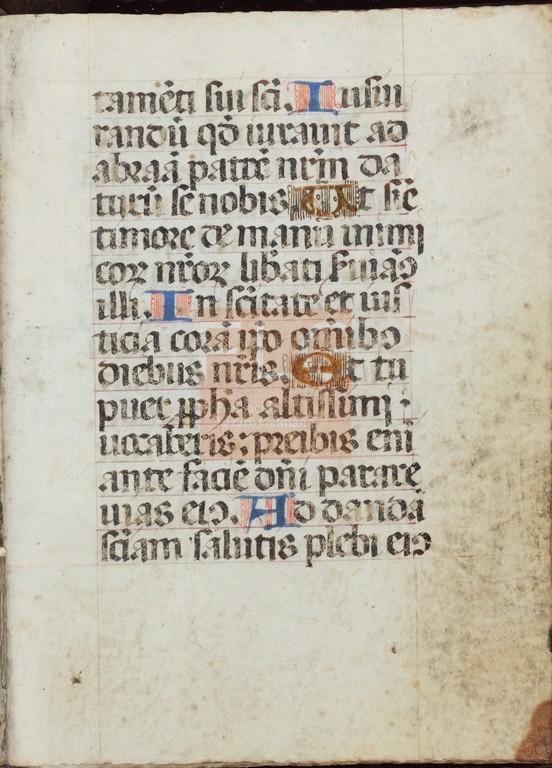 tamēti sui scī. Iusiu
randū qđ iurauit ad
abraā patrē nrm̄ da
turū se nobis Ut siē
timore de manū inimi
coꝝ nr̄oꝝ libati ẜuiaꝰ
illi. In scītate et ius
ticia corā ip̄o oībꝰ
diebus nrīs. Et tu
puer ꝓpha altissimi :
uocaberis: preibis enī
ante faciē dn̄i parare
uias eiꝰ. Ad dandā
sciam salutis plebi eiꝰ